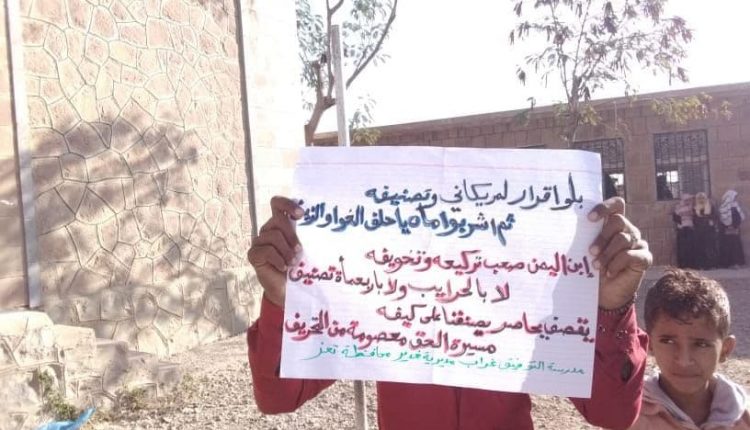 بلو اقرار لمريكاني وتصنيفه
ثم اشربوا ماه يا حلف الغوا والزيف
يا ابن اليمن صعب تركيعه وتخويفه
لا بالحرايب ولا باربعمأة تصنيف
يقصف يحاصر يصنفنا على كيفه
مسيرة الحق معصومة من التحريف
مدرسة التوفيق غراب مديرية غدير محافظة تعز